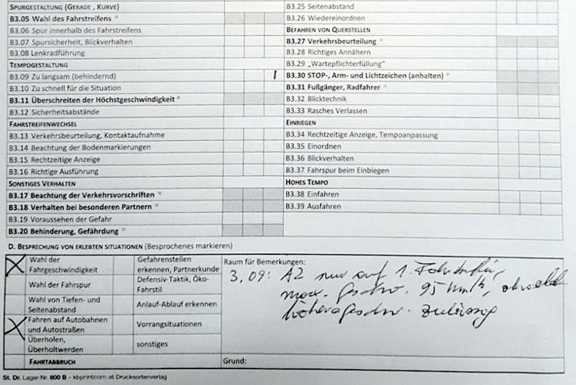 SPURGESTALTUNG (GERADE, KURVE)
B3.05 Wahl des Fahrstreifens
B3.06 Spur innerhalb des Fahrstreifens
B3.07 Spursicherheit, Blickverhalten
B3.08 Lenkradführung
TEMPOGESTALTUNG
B3.09 Zu langsam (behindernd)
B3.10 Zu schnell für die Situation
B3.11 Überschreiten der Höchstgeschwindigkeit
B3.12 Sicherheitsabstände
FAHRSTREIFENWECHSEL
B3.13 Verkehrsbeurteilung, Kontaktaufnahme
B3.14 Beachtung der Bodenmarkierungen
B3.15 Rechtzeitige Anzeige
B3.16 Richtige Ausführung
SONSTIGES VERHALTEN
B3.17 Beachtung der Verkehrsvorschriften
B3.18 Verhalten bei besonderen Partnern
B3.19 Voraussehen der Gefahr
B3.20 Behinderung, Gefährdung
B3.25 Seitenabstand
B3.26 Wiedereinordnen
BEFAHREN VON QUERSTELLEN
B3.27 Verkehrsbeurteilung
B3.28 Richtiges Annähern
B3.29 „Wartepflichterfüllung"
B3.30 STOP-, Arm- und Lichtzeichen (anhalten)
B3.31 Fußgänger, Radfahrer
B3.32 Blicktechnik
B3.33 Rasches Verlassen
EINBIEGEN
B3.34 Rechtzeitige Anzeige, Tempoanpassung
B3.35 Einordnen
B3.36 Blickverhalten
B3.37 Fahrspur beim Einbiegen
HOHES TEMPO
B3.38 Einfahren
B3.39 Ausfahren
D. BESPRECHUNG VON ERLEBTEN SITUATIONEN (Besprochenes markieren)
X Wahl der
Fahrgeschwindigkeit
Wahl der Fahrspur
Wahl von Tiefen- und
Seitenabstand
X Fahren auf Autobahnen
und Autostraßen
Überholen,
Überholtwerden
FAHRTABBRUCH
Gefahrenstellen
erkennen, Partnerkunde
Defensiv-Taktik, Öko-
Fahrstil
Anlauf-Ablauf erkennen
Vorrangsituationen
sonstiges
Raum für Bemerkungen:
3.09: A2 nur auf 1. Fahrstreifen,
max. Geschw. 95 km/h, obwohl
höhere Geschw. zulässig
Grund:
St. Dr. Lager-Nr. 800 B - kbprintcom.at Drucksortenverlag